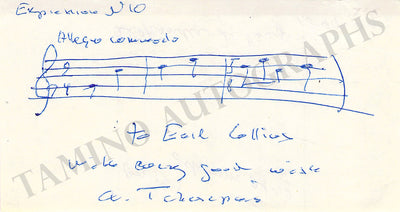 Expression N10
Allegro commodo
to Earl Collins
with every good wish
A. Tcherepnin
TAMINO AUTOGRAPHS